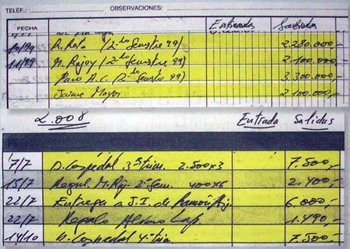 TELÉF.: OBSERVACIONES:
FECHA Entrada Salida
R. Rato (2º Semestre 99) 2.280.000,-
11/99 M. Rajoy (2º Semestre 99) 2.100.000,-
A.C. (2º Semestre 99) 3.300.000,-
Jaime Mayor 2.100.000,-
2.008 Entrada Salidas
7/7 D. Cospedal 3º trim. 2.500x3 7.500,-
15/7 M. Raj. 2º Sem. 400x6 2.400,-
22/7 Entrega a J.I. de 6.000,-
22/7 Regalo 1.490,-
14/10 D. Cospedal 4º trim. 7.500,-